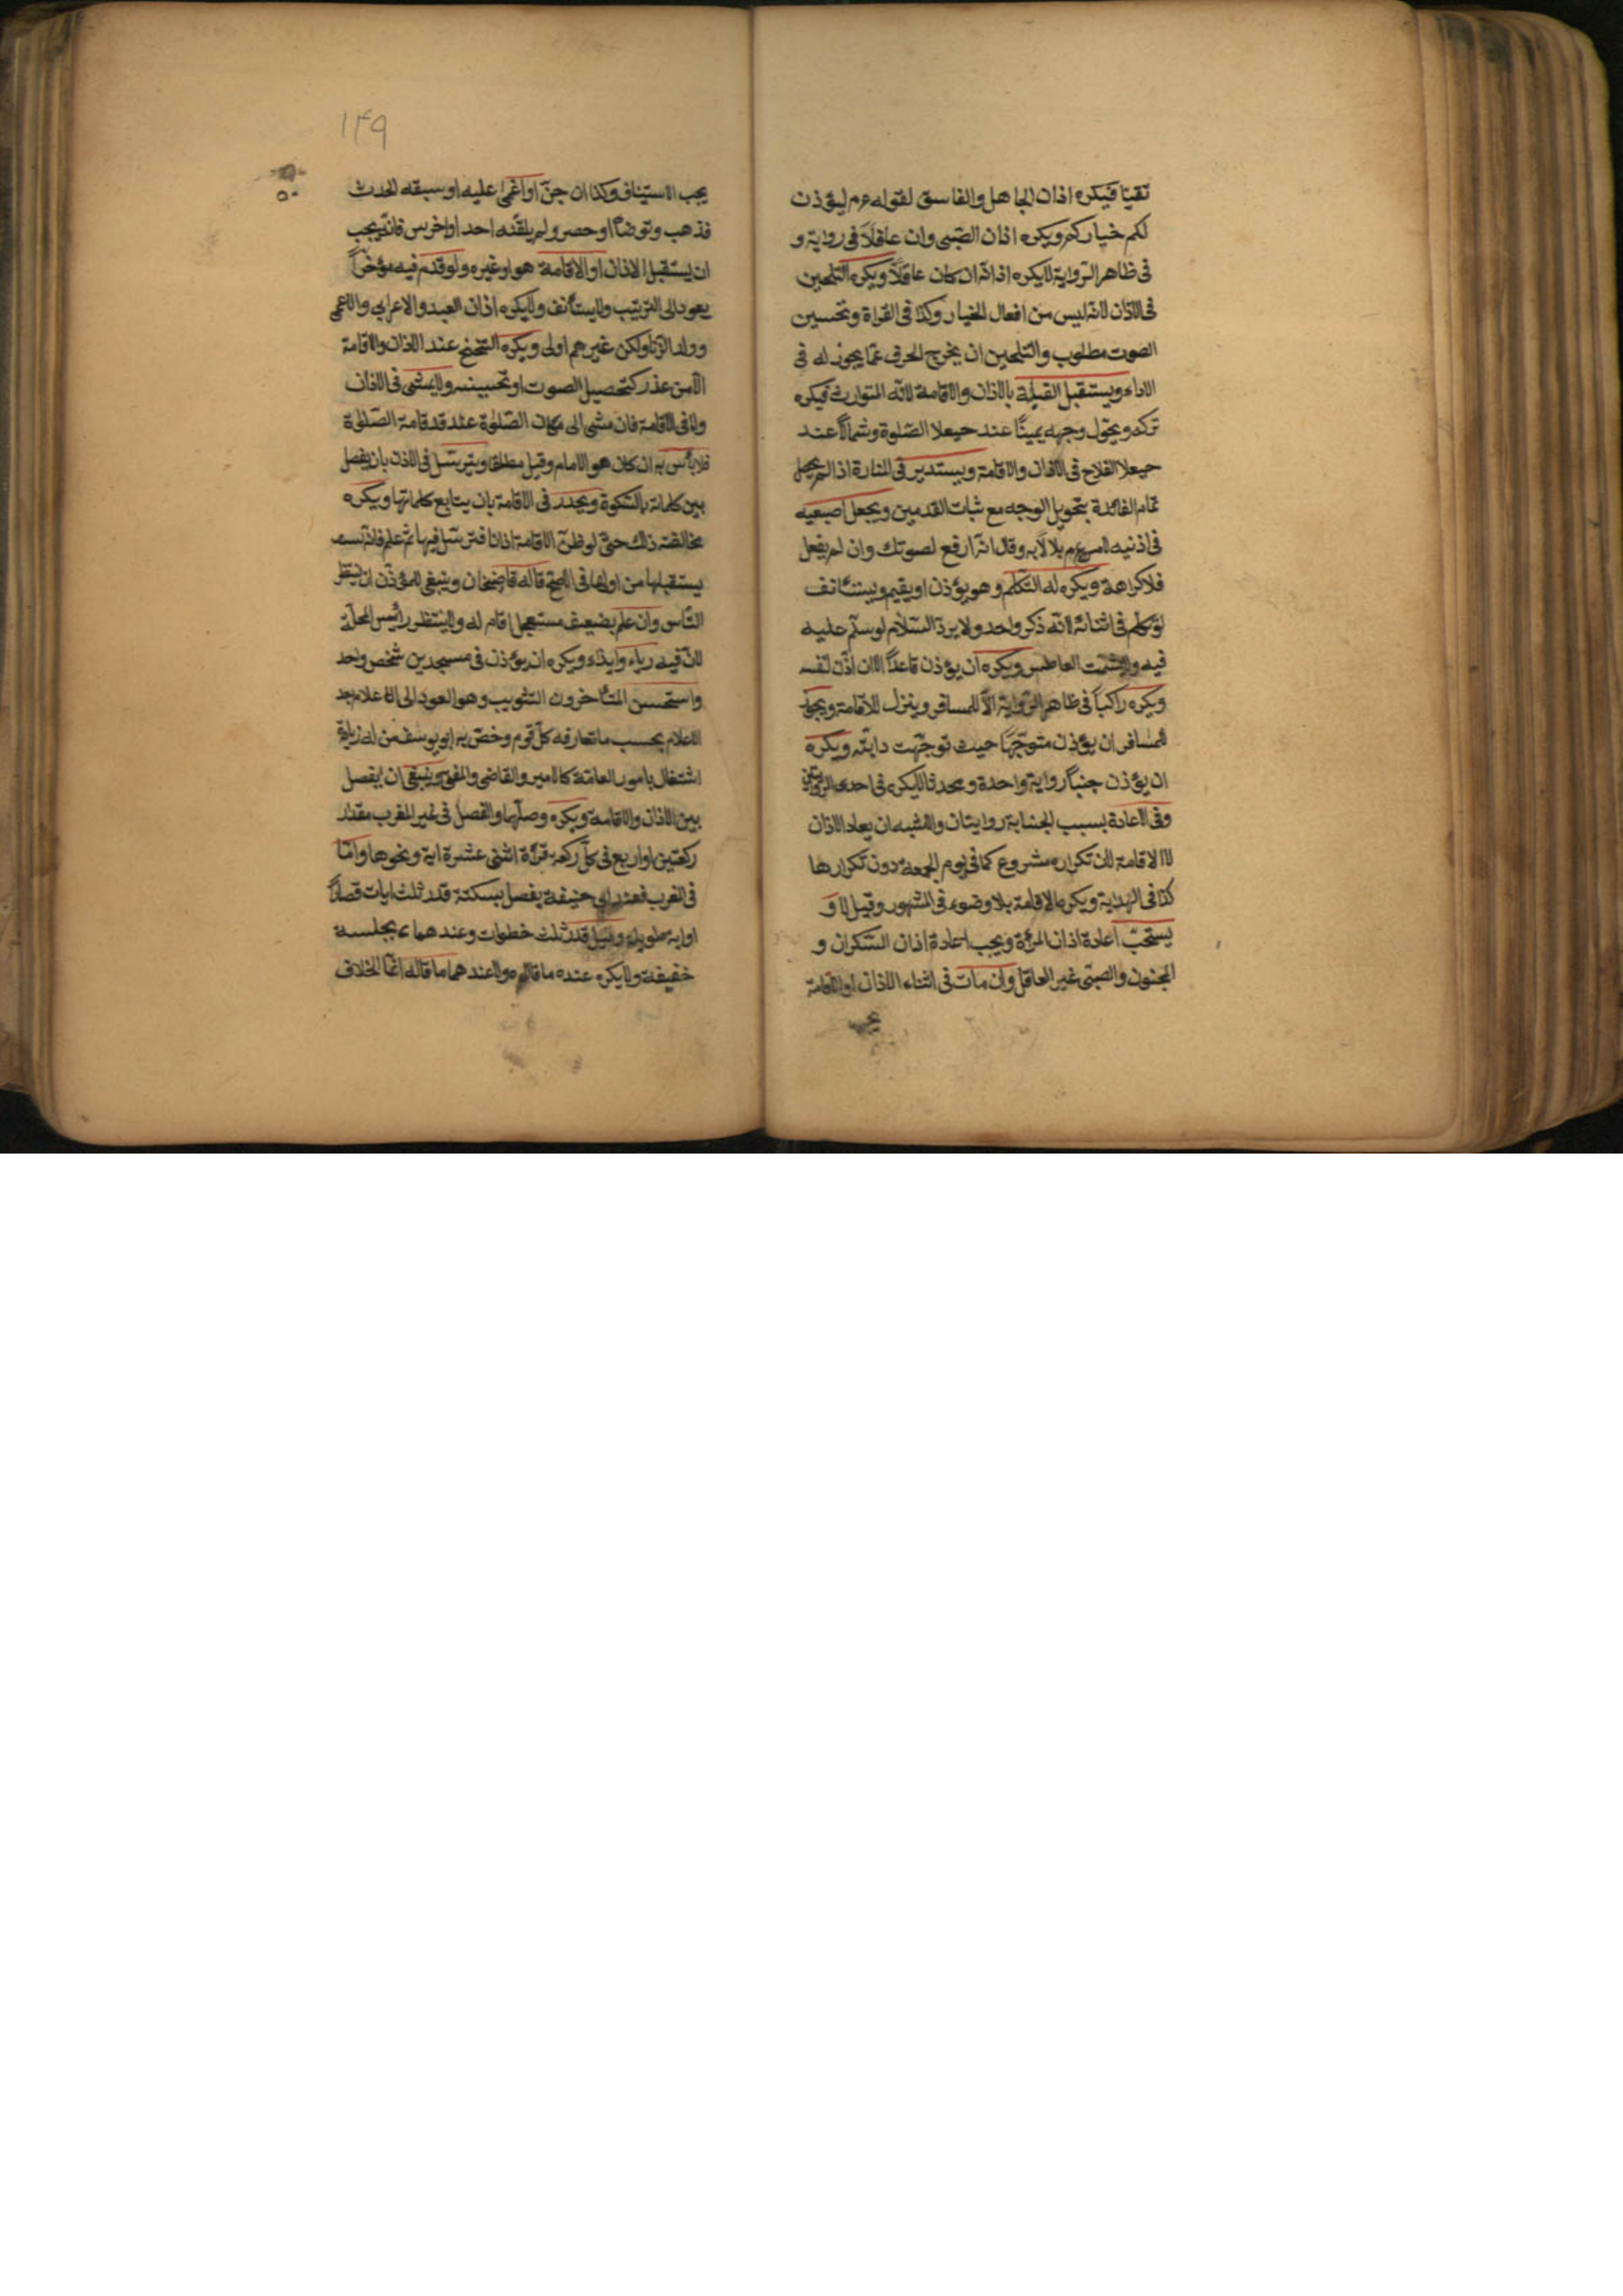 تقيّا فيكره اذان الجاهل والفاسق لقوله عم ليؤذن
لكم خياركم ويكره اذان الصّبى وان عاقلاً فى رواية و
فى ظاهر الرّواية لايكره اذانه ان كان عاقلاً ويكره التلحين
فى الاذان لانه ليس من افعال الخيار وكذا فى القراة وتحسين
الصوت مطلوب والتلحين ان يخرج الحرف عمّا يجوز له فى
الاداء ويستقبل القبلة بالاذان والاقامة لانّه المتوارث فيكره
تركه ويحوّل وجهه يمينًا عند حيعلا الصّلوة وشمالاً عند
حيعلا الفلاح فى الاذان والاقامة ويستدير فى المنارة اذا لم يحصل
تمام الفائدة بتحويل الوجه مع ثبات القدمين ويجعل اصبعيه
فى اذنيه لامره عم بلالاً به وقال انّه ارفع لصوتك وان لم يفعل
فلا كراهة ويكره له التكلّم وهو يؤذن او يقيم ويستانف
لو تكلم فى اثنائه لانّه ذكر واحد ولا يردّ السّلام لو سلّم عليه
فيه ولا يشمّت العاطس ويكره ان يؤذن قاعدًا الا ان اذّن لنفسه
ويكره راكباً فى ظاهر الرّواية الاّ للمسافر وينزل للاقامة ويجوز
للمسافر ان يؤذن متوجّهًا حيث توجّهت دابّته ويكره
ان يؤذن جنباً رواية واحدة ومحدثا لا يكره فى احدى الروايتين
وفى الاعادة بسبب الجنابة روايتان والاشبه ان يعاد الاذان
لا الاقامة لان تكراره مشروع كما فى يوم الجمعة دون تكرارها
كذا فى الهداية ويكره الاقامة بلا وضوء فى المشهور وقيل لا و
يستحبّ اعادة اذان المرأة ويجب اعادة اذان السّكران و
المجنون والصبّى غير العاقل وان مات فى اثناء الاذان او الاقامة
يجب
١٤٩
يجب الاستيناف وكذا ان جنّ او اغمى عليه او سبقه الحدث
فذهب وتوضأ او حصر ولم يلقّنه احد او اخرس فانّه يجب
ان يستقبل الاذان او الاقامة هو او غيره ولو قدّم فيه مؤخراً
يعود الى الترتيب ولا يستأنف ولايكره اذان العبد والاعرابي والاعمى
وولد الزنا ولكن غيرهم اولى ويكره التنحنح عند الاذان والاقامة
الاّ من عذر كتحصيل الصوت او تحسينه ولا يمشى فى الاذان
ولا فى الاقامة فان مشى الى مكان الصّلوة عند قد قامة الصّلوة
فلا بأس به ان كان هو الامام وقيل مطلقا ويترسّل فى الاذن بان يفصل
بين كلماته بالسّكوة ويحدر فى الاقامة بان يتابع كلماتها ويكره
مخالفته ذلك حتى لو ظنّ الاقامة اذانا فترسّل فيها ثم علم فانه
يستقبلها من اولها فى الاصح قاله قاضيخان وينبغى للمؤذّن ان ينتظر
النّاس وان علم بضعيف مستعجل اقام له ولا ينتظر رائيس المحلّة
لانّ فيه رياء وايذاء ويكره ان يؤذن فى مسجدين شخص واحد
واستحسن المتأخرون التثويب وهو العود الى الاعلام بعد
الاعلام بحسب ما تعارفه كلّ قوم وخصّ به ابو يوسف من له زيادة
اشتغال بامور العامّة كالامير والقاضى والمفتى وينبغى ان يفصل
بين الاذان والاقامة ويكره وصلها والفصل فى غير المغرب مقدار
ركعتين او اربع فى كلّ ركعة قرأة اثنى عشرة اية ونحوها وامّا
فى المغرب فعند ابى حنيفة يفصل بسكتة قدر ثلث ايات قصار
او اية طويلة وقيل قدر ثلث خطوات وعندهما بجلسة
خفيفة ولا يكره عنده ما قالاه ولا عندهما ما قاله انّما الخلاف